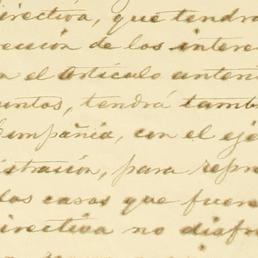 irectiva, que tendrá
cesión de los intere
n el Artículo anteri
untos, tendrá tamb
Compañía, con el eje
istración, para repre
los casos que fuere
irectiva no disfr